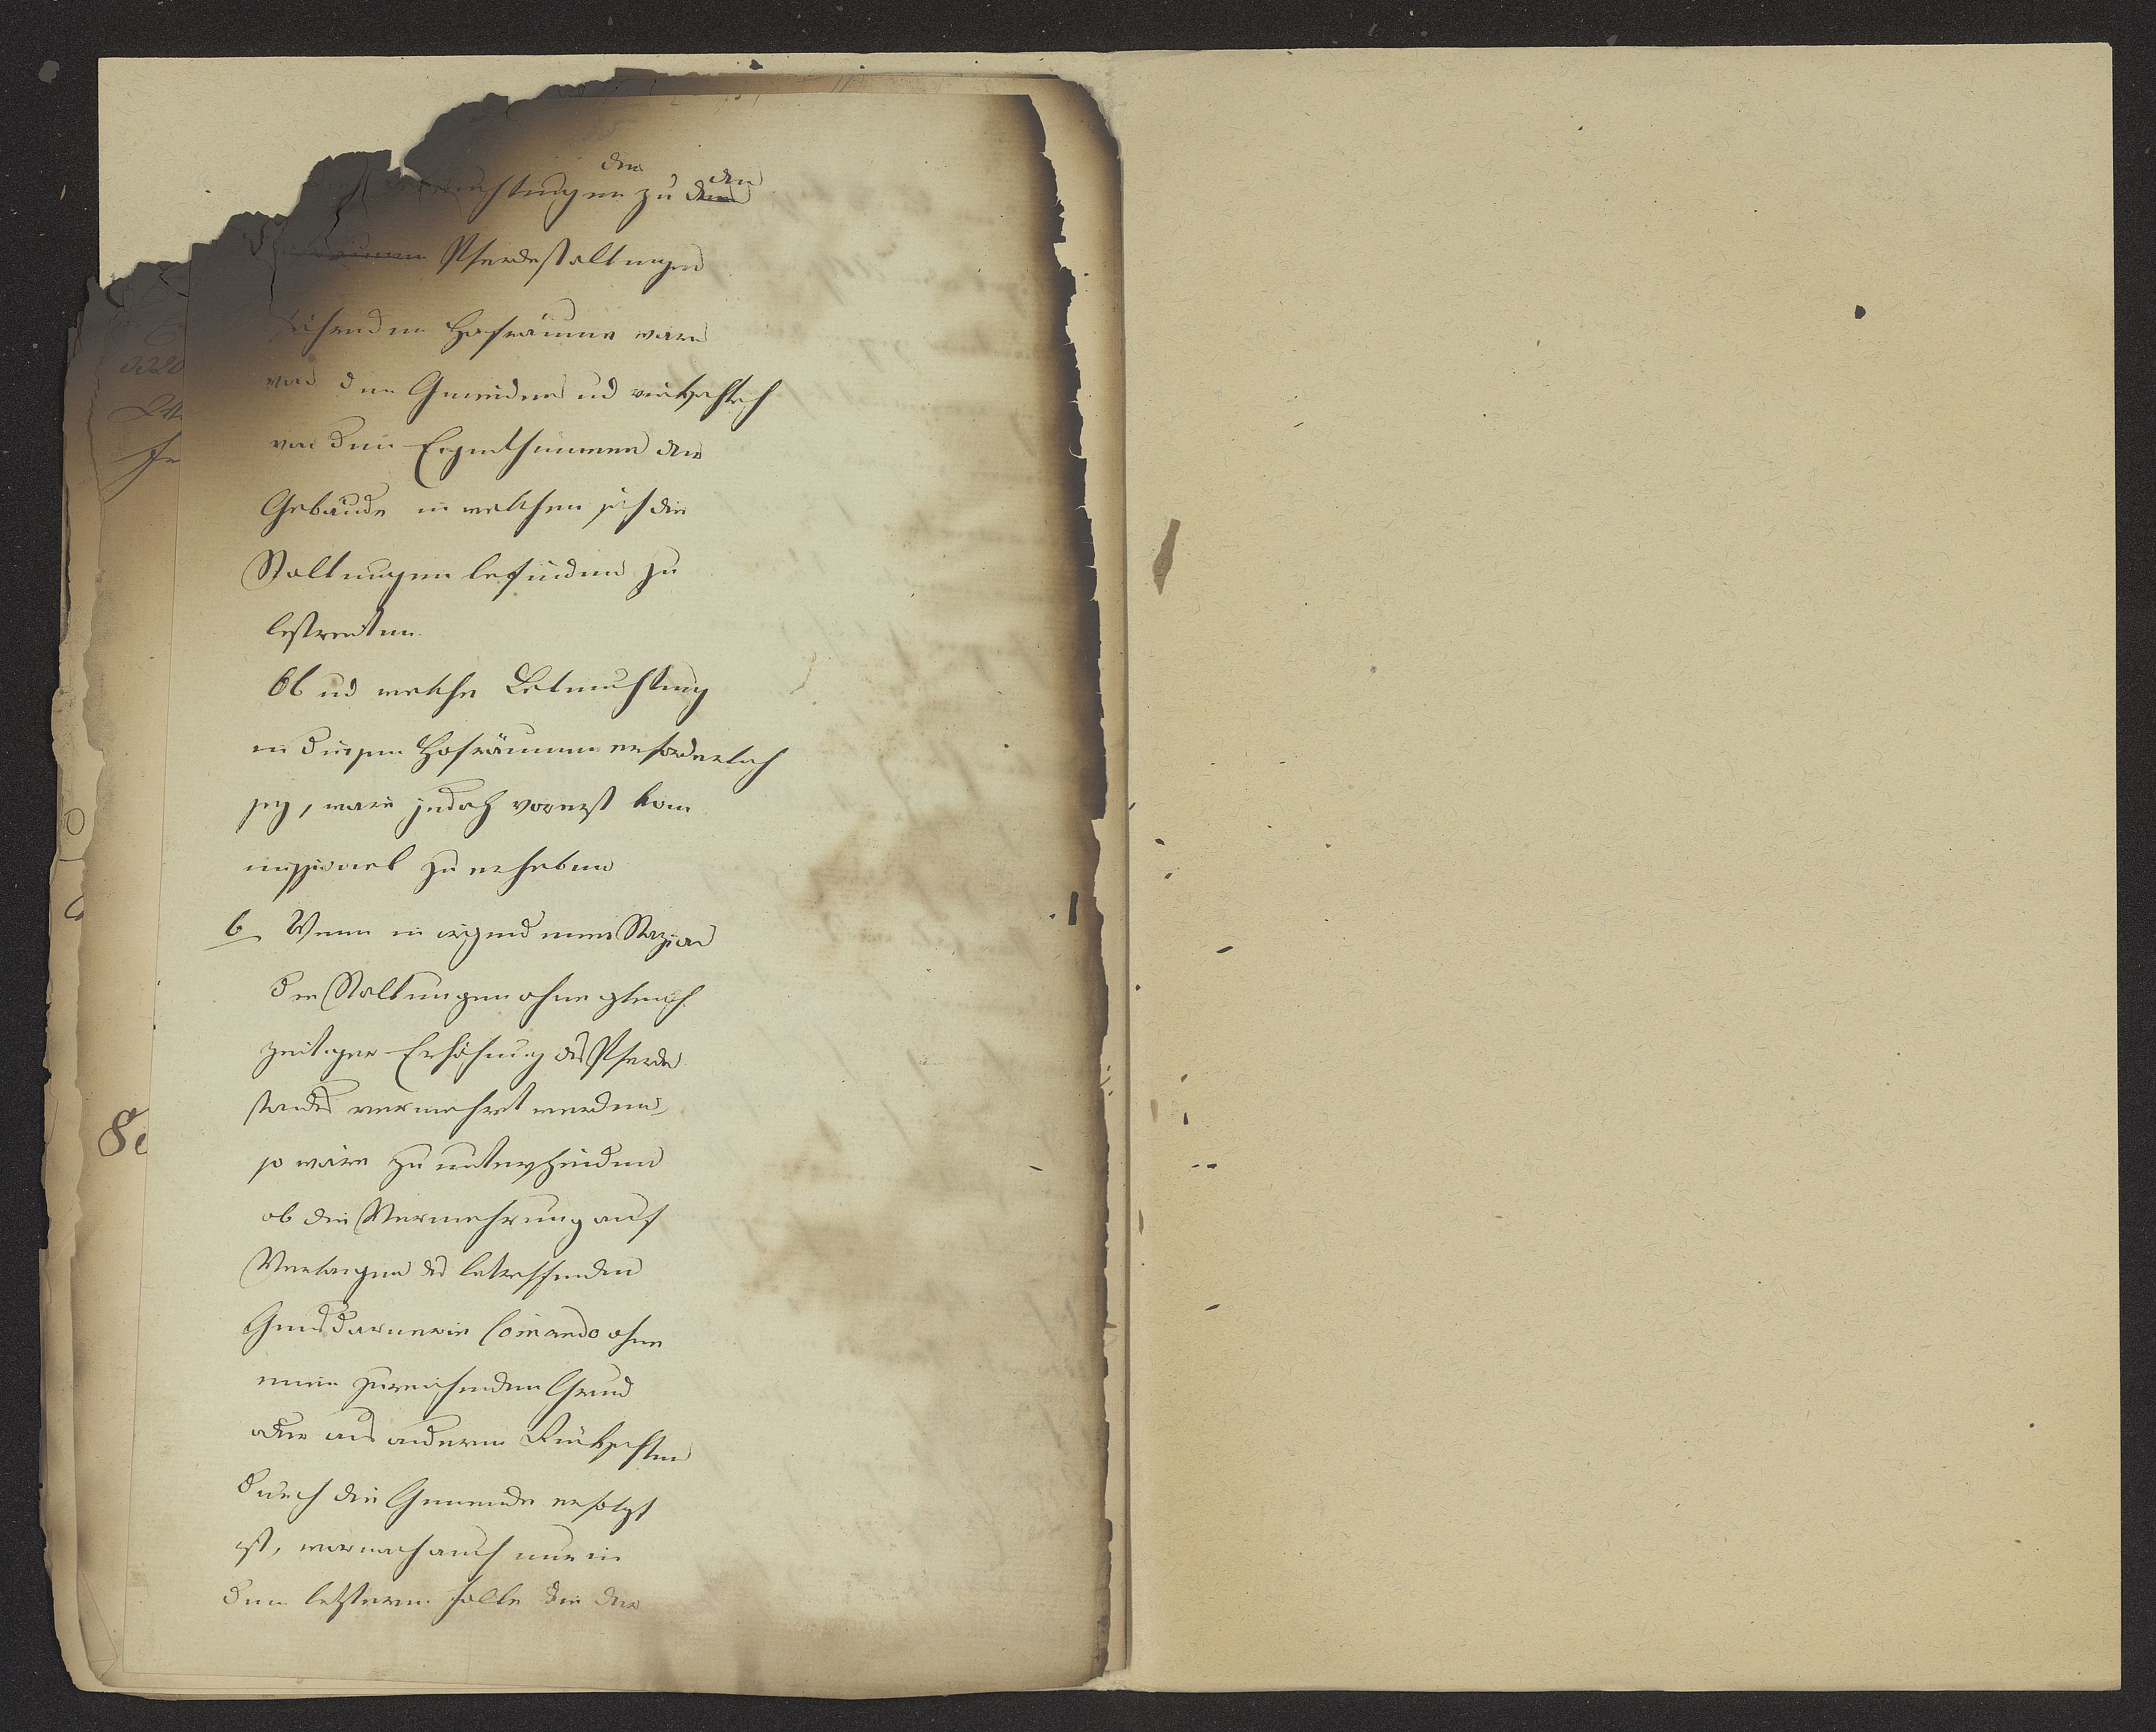 der
den
zu dem
Pferdestallungen
Hofräume wäre
von den Gemeinden und rücksichtlich
von den Eigenthümern der
Gebäude in welchen sich die
Stallungen befinden zu
bestreiten.
Ob und welche Beleuchtung
in diesen Hofräumen erforderlich
sey, wäre jedoch vorerst kom
missionel zu erheben
6 Wenn in irgend einer Stazion
die Stallungen ohne gleich
zeitiger Erhöhung des Pferde
standes vermehrt werden,
so wäre zu unterscheiden
ob die Vermehrung auf
Verlangen des betreffenden
Gensdarmerie Comando ohne
einen zureichenden Grund
oder aus anderen Rücksichten
durch die Gemeinde erfolgt
ist, wornach auch nur in
dem letzteren Falle die der